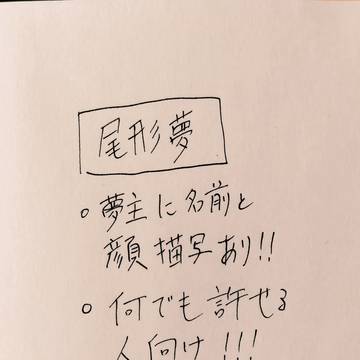 尾形夢
○ 夢主に名前と
顔描写あり!!
○ 何でも許せる
人向け!!!